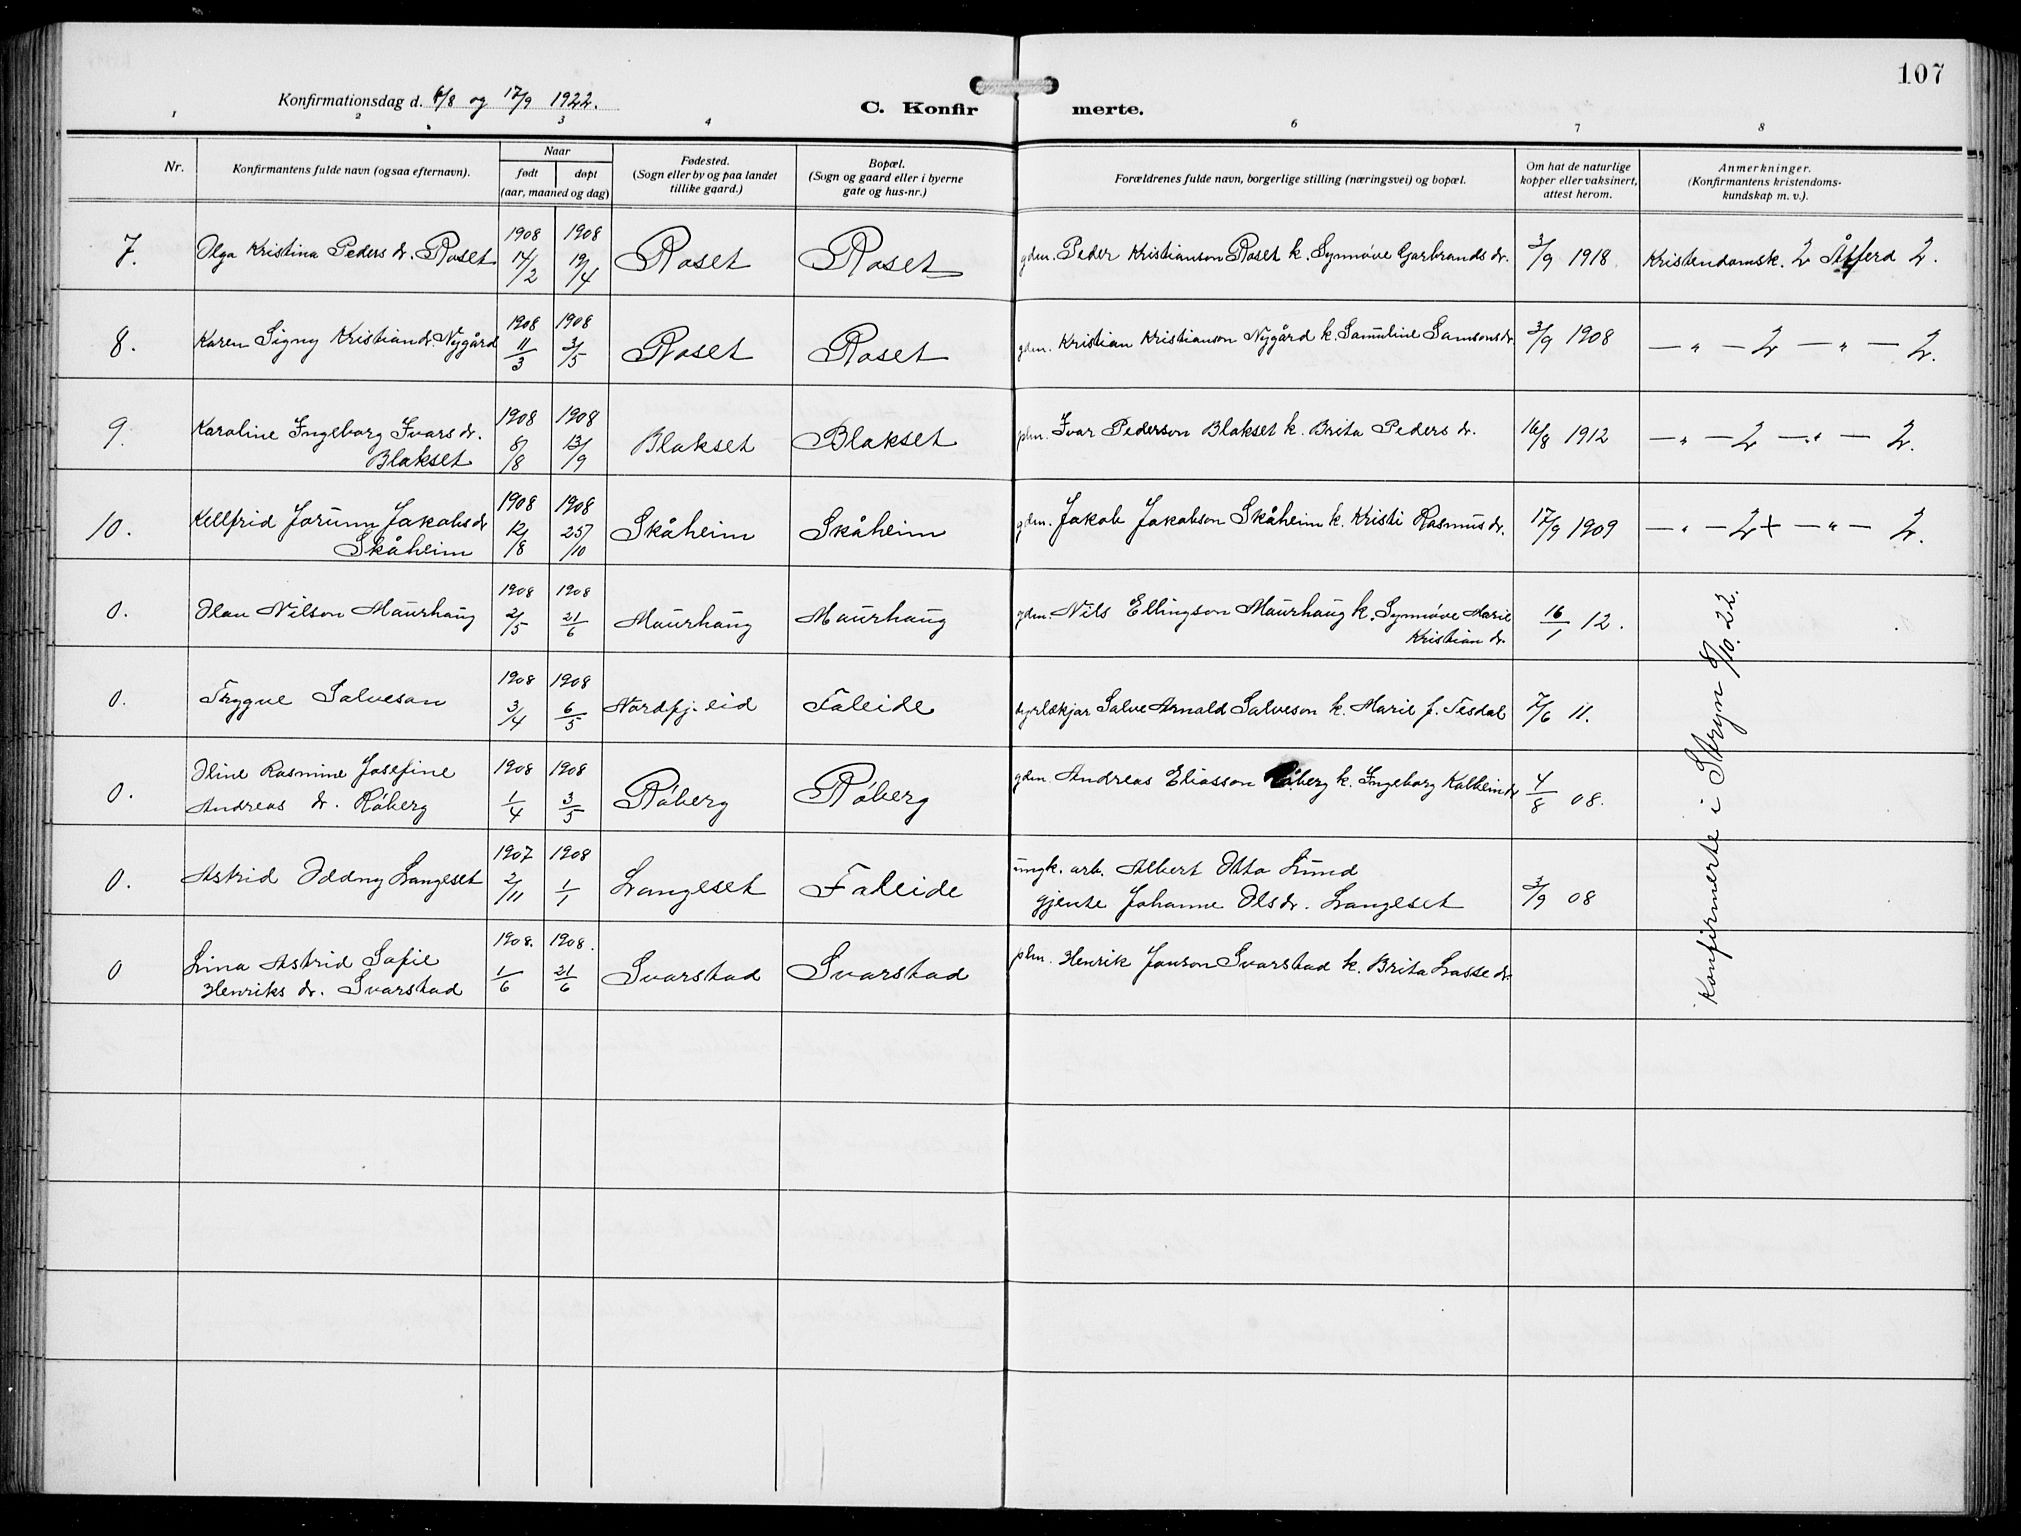 107
Konfirmationsdag d. 6/8 og 17/9 1922.
C. Konfir merte.
1 2 3 4 6 7 8
Nr.
Konfirmantens fulde navn (ogsaa efternavn).
Naar
født døpt
(aar, maaned og dag)
Fødested.
(Sogn eller by og paa landet
tillike gaard.)
Bopæl.
(Sogn og gaard eller i byerne
gate og hus-nr.)
Forældrenes fulde navn, borgerlige stilling (næringsvei) og bopæl.
Om hat de naturlige
kopper eller vaksinert,
attest herom.
Anmerkninger.
(Konfirmantens kristendoms-
kundskap m. v.).
1908 1908
7. Olga Kristina Peders dr. Roset 14/2 19/4 Roset Roset gdm. Peder Kristianson Roset k. Synnøve Garbrands dr. 3/9 1918 Kristendomsk. 2 Åtferd 2.
1908 1908
8. Karen Signy Kristian dr. Nygård 11/3 3/5 Roset Roset gdm. Kristian Kristianson Nygård k. Samuline Samsons dr. 3/9 1908 — " — 2 — " — 2.
1908 1908
9. Karoline Ingeborg Ivars dr. 8/8 13/9 Blakset Blakset plm. Ivar Pederson Blakset k. Brita Peders dr. 16/8 1912 — " — 2 — " — 2.
Blakset
1908 1908
10. Kellfrid Jorunn Jakobs dr 12/8 25/10 Skåheim Skåheim gdm. Jakob Jakobson Skåheim k. Kristi Rasmus dr. 17/9 1909 — " — 2+ — " — 2.
Skåheim
1908 1908
0. Olav Nilson Maurhaug 2/5 21/6 Maurhaug Maurhaug gdm. Nils Ellingson Maurhaug k. Synnøve Marie 16/1 12.
Kristian dr.
1908 1908
0. Trygve Salveson 3/4 6/5 Nordfj. eid Faleide dyrlækjar Salve Arnald Salveson k. Marie f. Tesdal 7/6 11.
0. Oline Rasmine Josefine 1908 1908
Andreas dr. Råberg 1/4 3/5 Råberg Råberg gdm. Andreas Eliasson Råberg k. Ingeborg Kolbein dr 4/8 08.
1907 1908
0. Astrid Oddny Langeset 2/11 1/1 Langeset Faleide ungk. arb. Albert Otto Lund
gjente Johanne Ols dr. Langeset 3/9 08
1908. 1908.
0 Lina Astrid Sofie 1/6 21/6 Svarstad Svarstad plm. Henrik Janson Svarstad k. Brita Lasse dr.
Henriks dr. Svarstad
Konfirmerte i Stryn 8/10. 22.